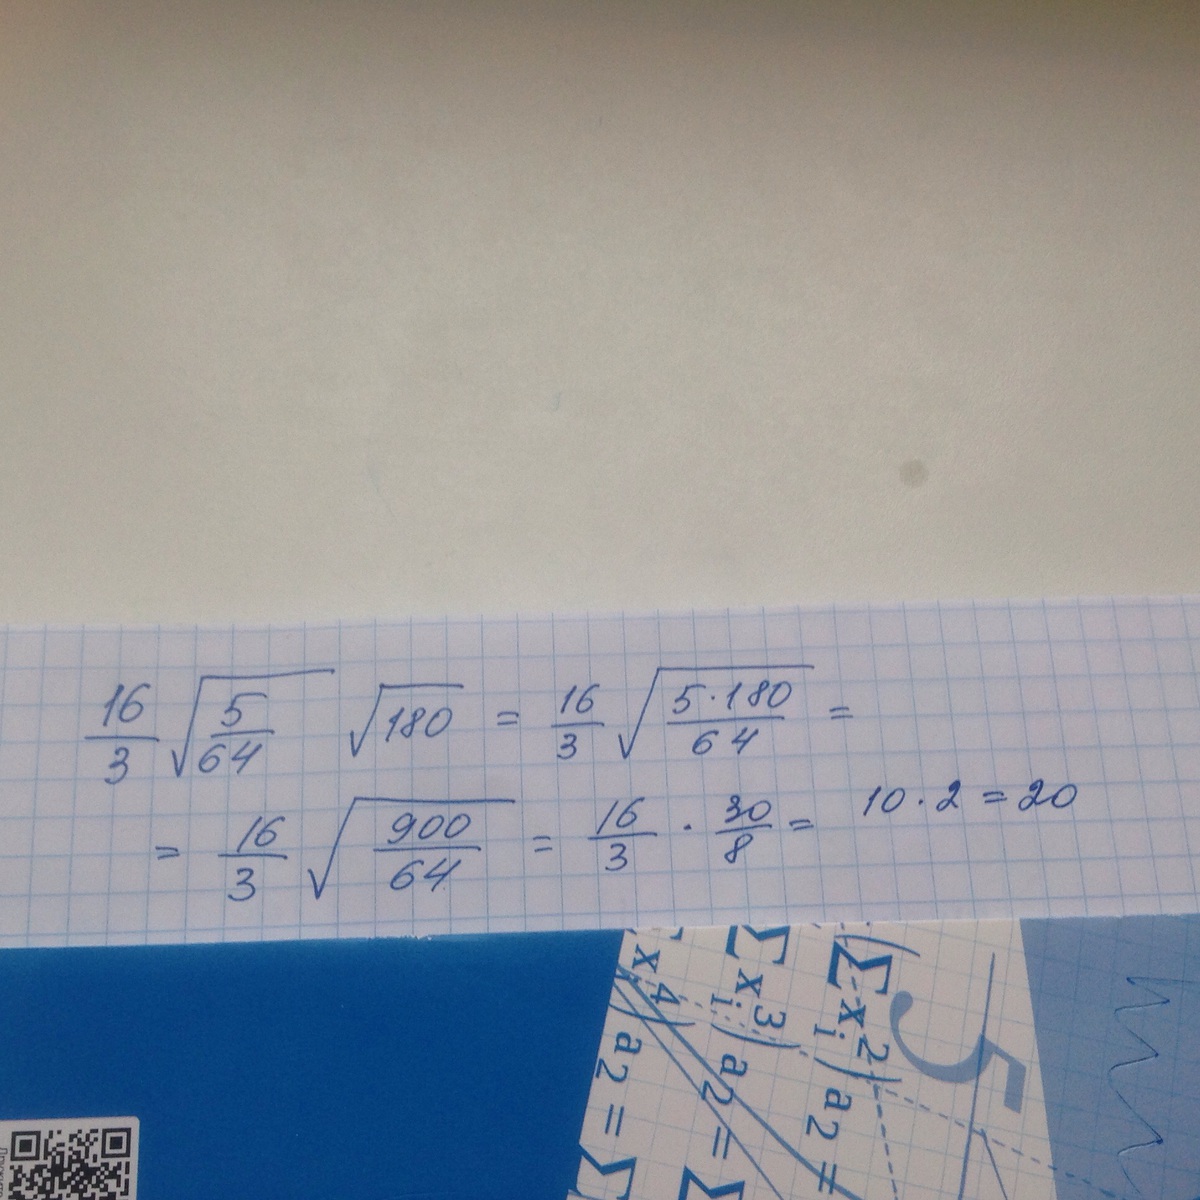 16/3 √(5/64) √180 = 16/3 √(5·180/64) =
= 16/3 √(900/64) = 16/3 · 30/8 = 10·2 = 20
(Σxᵢ²)a₂ =
Σxᵢ³)a₂ = Σ
x⁴)a₂ = Σ
5